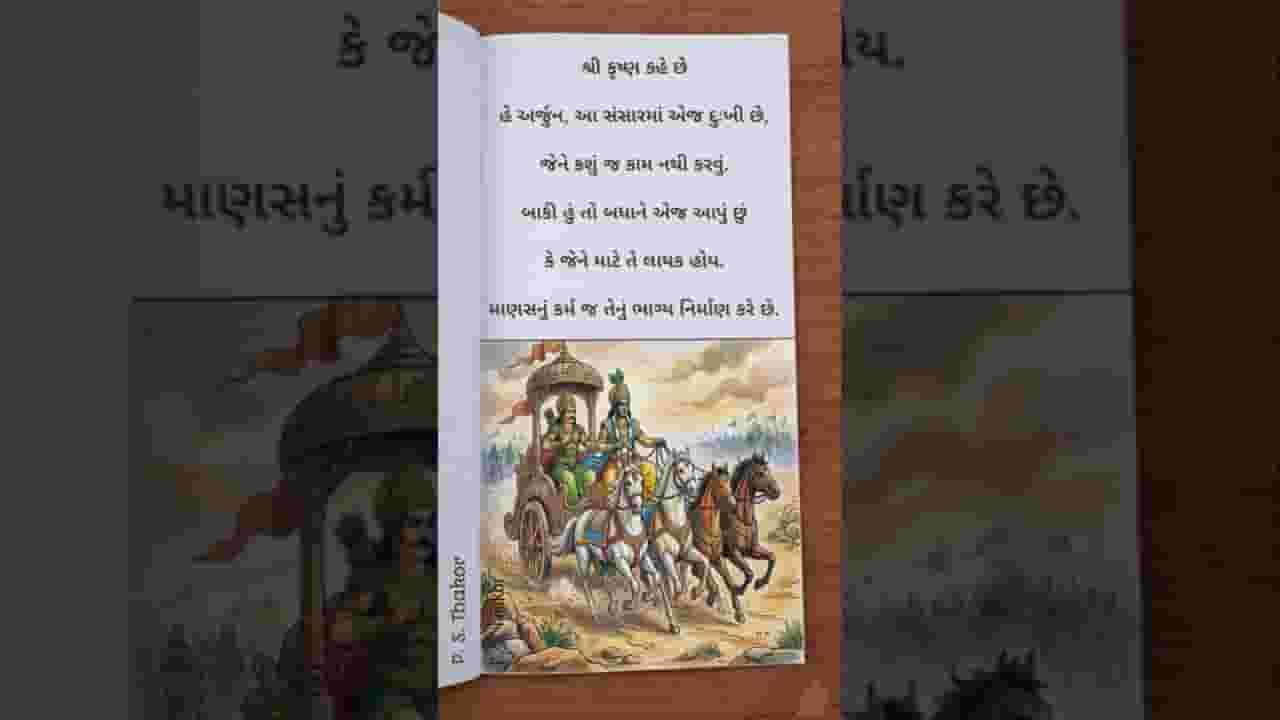 શ્રી કૃષ્ણ કહે છે
હે અર્જુન, આ સંસારમાં એજ દુઃખી છે,
જેને કશું જ કામ નથી કરવું.
બાકી હું તો બધાને એજ આપું છું
કે જેને માટે તે લાયક હોય.
માણસનું કર્મ જ તેનું ભાગ્ય નિર્માણ કરે છે.
P. S. Thakor